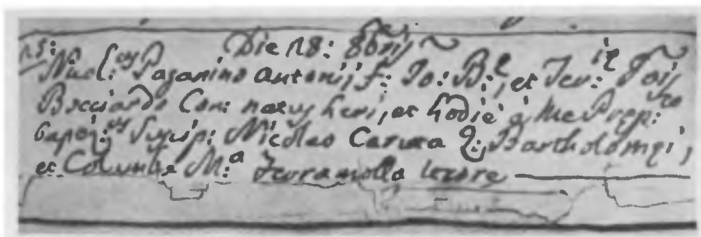 Die 28: 8bris
Nicol:us Paganino Antonij f: Jo: B:e, et Ter:
Bocciardo Con: natus heri, et hodie à me Prep:to
bapt:us Suscip: Nicolao Caruta Q: Bartholomei,
et Columba M:a Ferramolla uxore